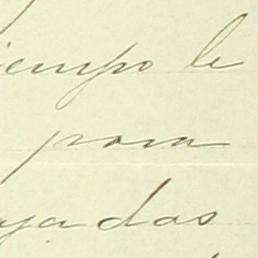 iempo le
para
ya das